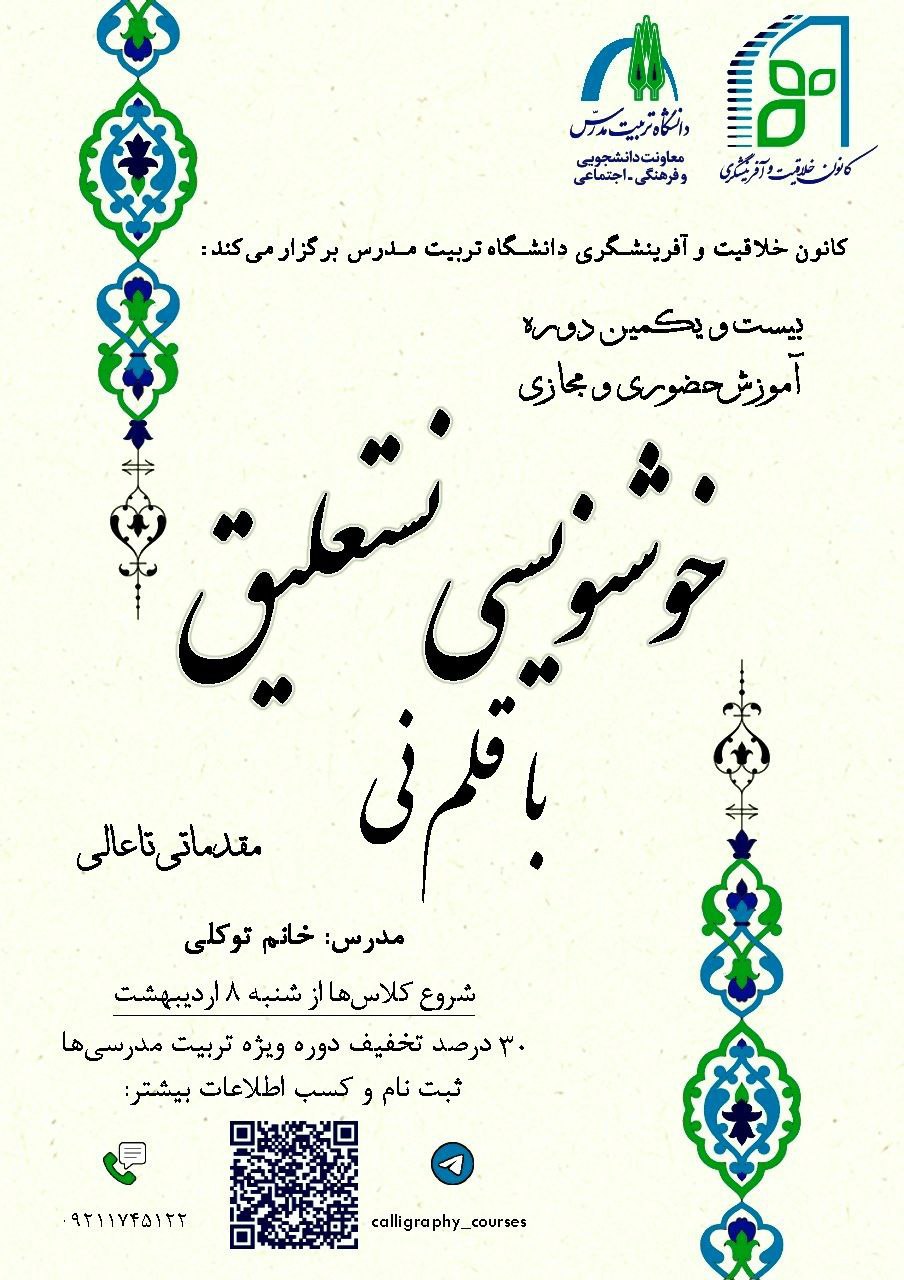 دانشگاه تربیت مدرّس
معاونت دانشجویی
و فرهنگی - اجتماعی
کانون خلاقیت و آفرینشگری
کانون خلاقیت و آفرینشگری دانشگاه تربیت مدرس برگزار می‌کند:
بیست و یکمین دوره
آموزش حضوری و مجازی
خوشنویسی نستعلیق
با قلم نی
مقدماتی تا عالی
مدرس: خانم توکلی
شروع کلاس‌ها از شنبه ۸ اردیبهشت
۳۰ درصد تخفیف دوره ویژه تربیت مدرسی‌ها
ثبت نام و کسب اطلاعات بیشتر:
calligraphy_courses
۰۹۲۱۱۷۴۵۱۲۲